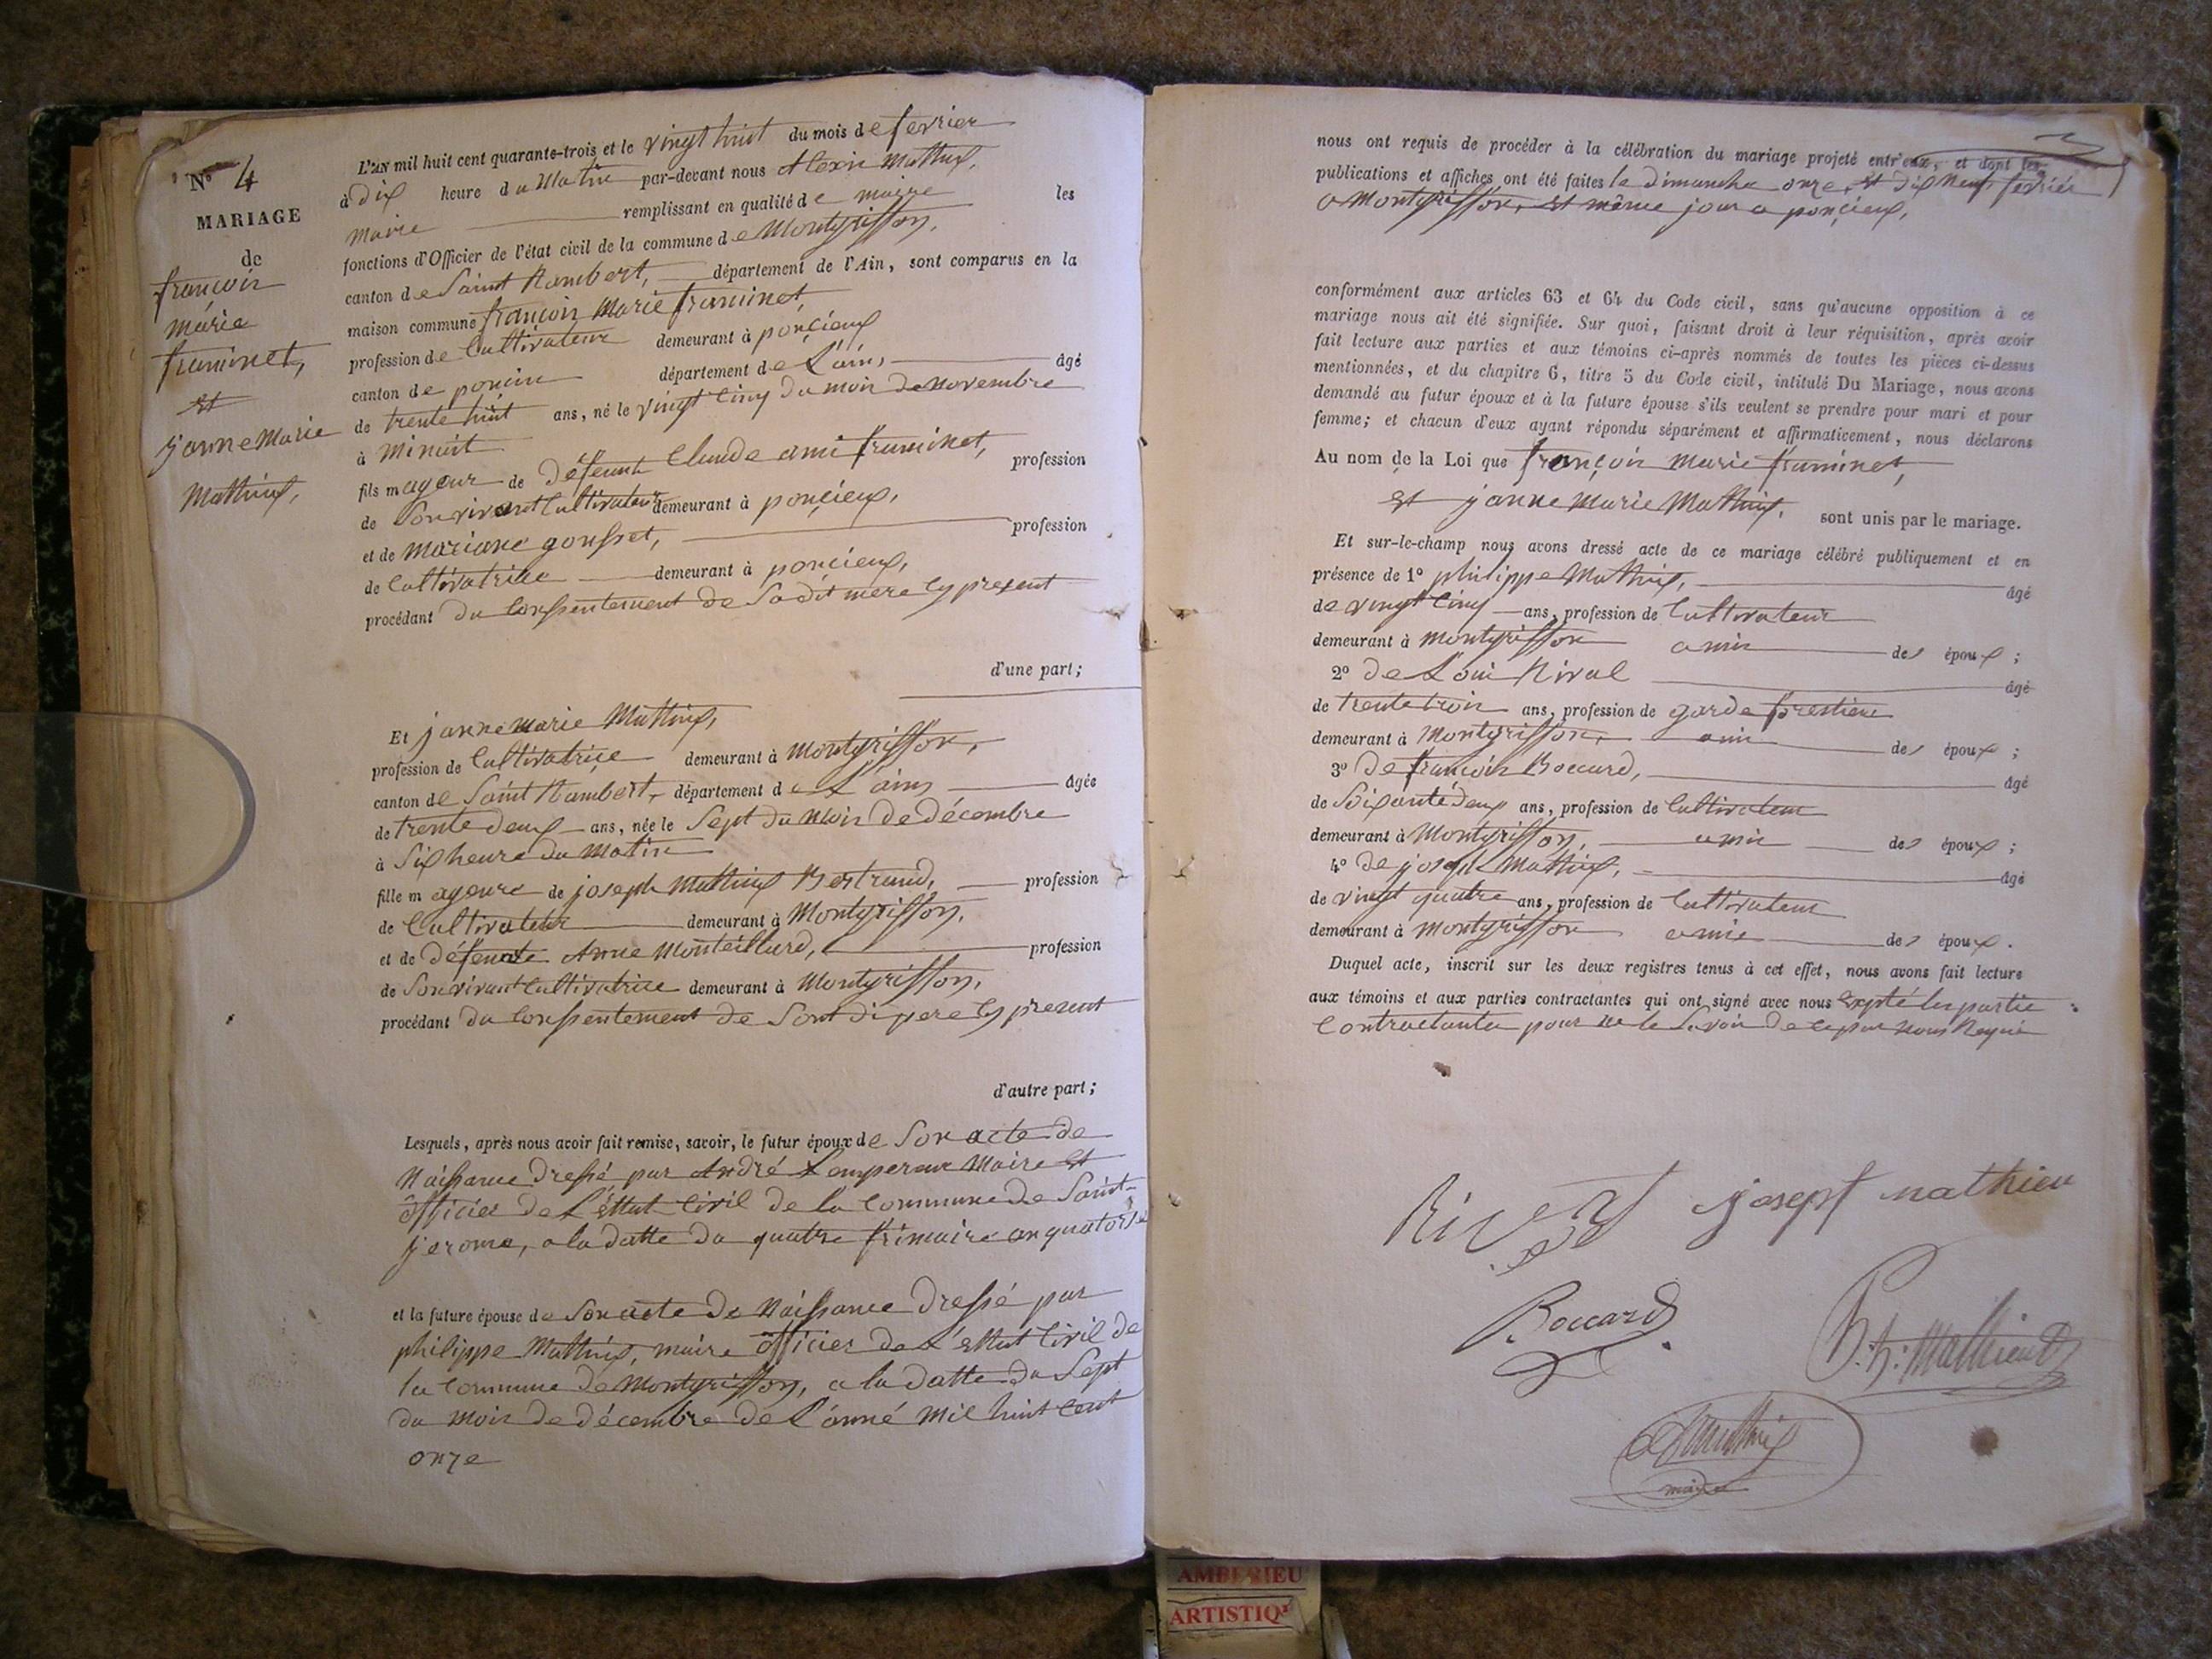 N° 4
MARIAGE
de
françois
marie
framinet,
et
janne Marie
Mathieux,
L'AN mil huit cent quarante-trois et le vingt huit du mois de fevrier
à dix heure du Matin par-devant nous Alexis Mathieux,
maire remplissant en qualité de maire les
fonctions d'Officier de l'état civil de la commune de Montgriffon,
canton de Saint Rambert, département de l'Ain, sont comparus en la
maison commune françois Marie framinet,
profession de Cultivateur demeurant à ponçieux
canton de poncin département de L'ain, âgé
de trente huit ans, né le vingt cinq du mois de novembre
à minuit
fils mageur de défeunt Claude ami framinet, profession
de Son vivant Cultivateur demeurant à ponçieux,
et de mariane gousset, profession
de Cultivatrice demeurant à poncieux,
procédant du Consentement de Sadit mère cy present
d'une part;
Et janne marie Mathieux,
profession de Cultivatrice demeurant à Montgriffon,
canton de Saint Rambert, département de L'ain, âgée
de trente deux ans, née le Sept du Mois de décembre
à Six heure du Matin
fille mageure de joseph Mathieux Bertrand, profession
de Cultivateur demeurant à Montgriffon,
et de défeunte Anne Monteillard, profession
de Son vivant Cultivatrice demeurant à Montgriffon,
procédant du Consentement de Sont di pere cy present
d'autre part;
Lesquels, après nous avoir fait remise, savoir, le futur époux de Son acte de
Naissance Dressé par André Lempereur Maire et
officier de L'éttat Civil de la Commune de Saint-
jerome, a la datte du quatre frimaire an quatorse
et la future épouse de Son acte de Naissance Dressé par
philippe Mathieux, maire officier de L'ettat Civil de
la Commune de Montgriffon, a la datte du Sept
du mois de décembre de L'anné mil huit Cent
onze
nous ont requis de procéder à la célébration du mariage projeté entr'eux, et dont les
publications et affiches ont été faites le dimanche onze et dix Neuf fevrier
a Montgriffon, et même jour a ponçieux,
conformément aux articles 63 et 64 du Code civil, sans qu'aucune opposition à ce
mariage nous ait été signifiée. Sur quoi, faisant droit à leur réquisition, après avoir
fait lecture aux parties et aux témoins ci-après nommés de toutes les pièces ci-dessus
mentionnées, et du chapitre 6, titre 5 du Code civil, intitulé Du Mariage, nous avons
demandé au futur époux et à la future épouse s'ils veulent se prendre pour mari et pour
femme; et chacun d'eux ayant répondu séparément et affirmativement, nous déclarons
Au nom de la Loi que françois marie framinet,
et janne Marie Mathieux, sont unis par le mariage.
Et sur-le-champ nous avons dressé acte de ce mariage célébré publiquement et en
présence de 1° philippe Mathieux, âgé
de vingt Cinq ans, profession de Cultivateur
demeurant à montgriffon amis des époux;
2° de Loui Rival âgé
de trente trois ans, profession de garde forestiere
demeurant à Montgriffon, amis des époux;
3° de françois Boccard, âgé
de Soixante deux ans, profession de Cultivateur
demeurant à Montgriffon, amis des époux;
4° de joseph Mathieux, âgé
de vingt quatre ans, profession de Cultivateur
demeurant à montgriffon amis des époux.
Duquel acte, inscrit sur les deux registres tenus à cet effet, nous avons fait lecture
aux témoins et aux parties contractantes qui ont signé avec nous Exepté les partie
Contractante pour ne le Savoir de ce par nous Requis
Rival
joseph mathieu
Boccard
Ph. Mathieu
Mathieux
maire
AMBERIEU
ARTISTIQ